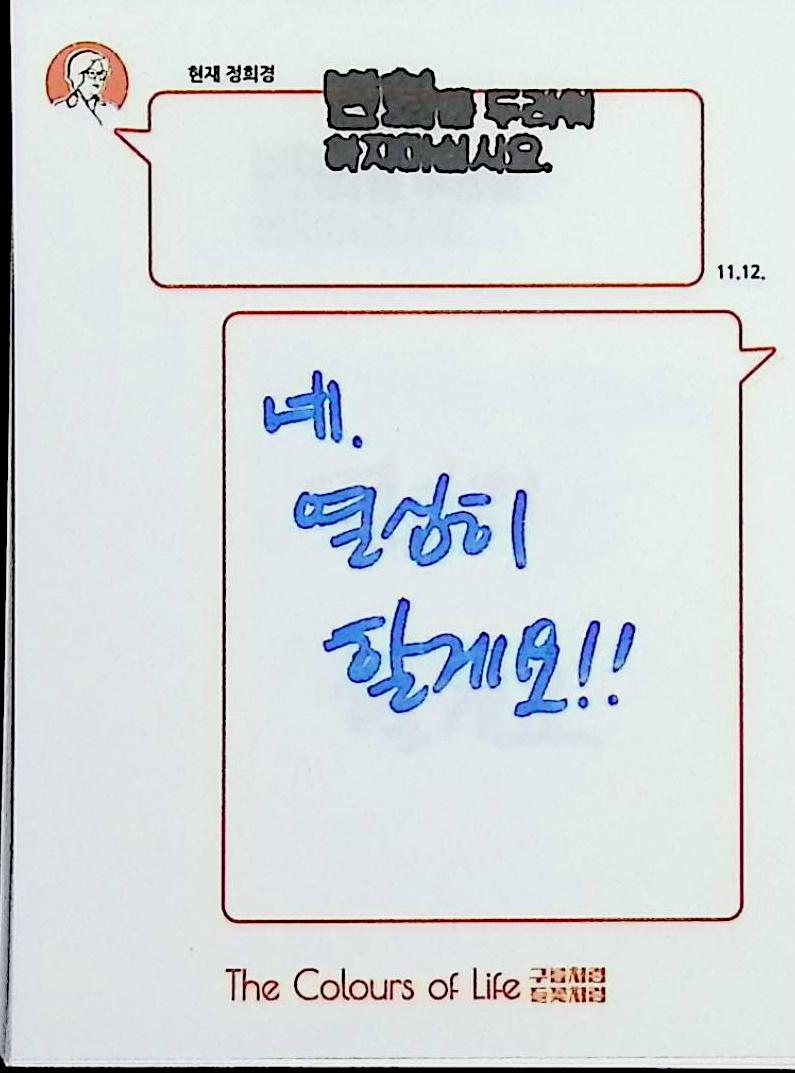 현재 정희경
변화를 두려워
하지마십시요.
11.12.
네.
열심히
할게요!!
The Colours of Life 구름처럼
들꽃처럼